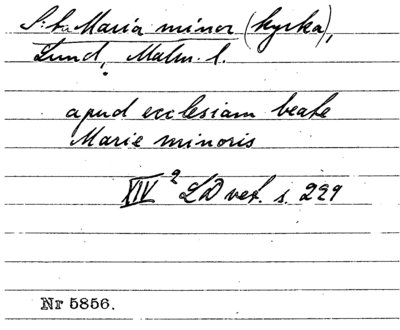 S:ta Maria minor (kyrka),
Lund, Malm. l.
apud ecclesiam beate
Marie minoris
XIV 2 LD vet. s. 229
Nr 5856.